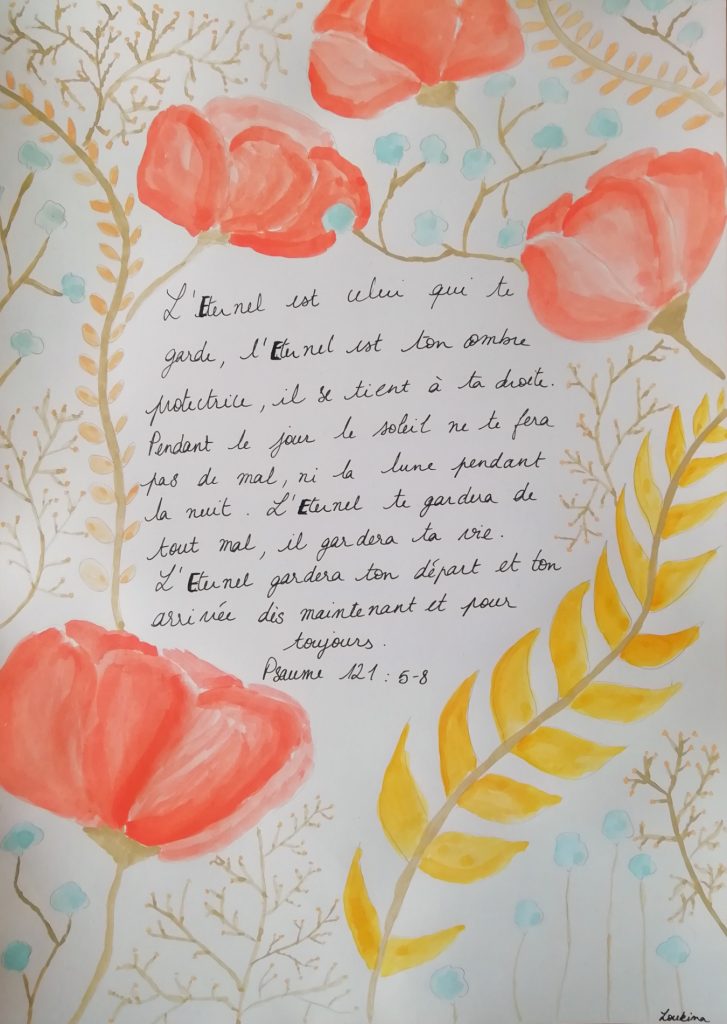 L'Eternel est celui qui te
garde, l'Eternel est ton ombre
protectrice, il se tient à ta droite.
Pendant le jour le soleil ne te fera
pas de mal, ni la lune pendant
la nuit. L'Eternel te gardera de
tout mal, il gardera ta vie.
L'Eternel gardera ton départ et ton
arrivée dès maintenant et pour
toujours.
Psaume 121 : 5-8
Loukina